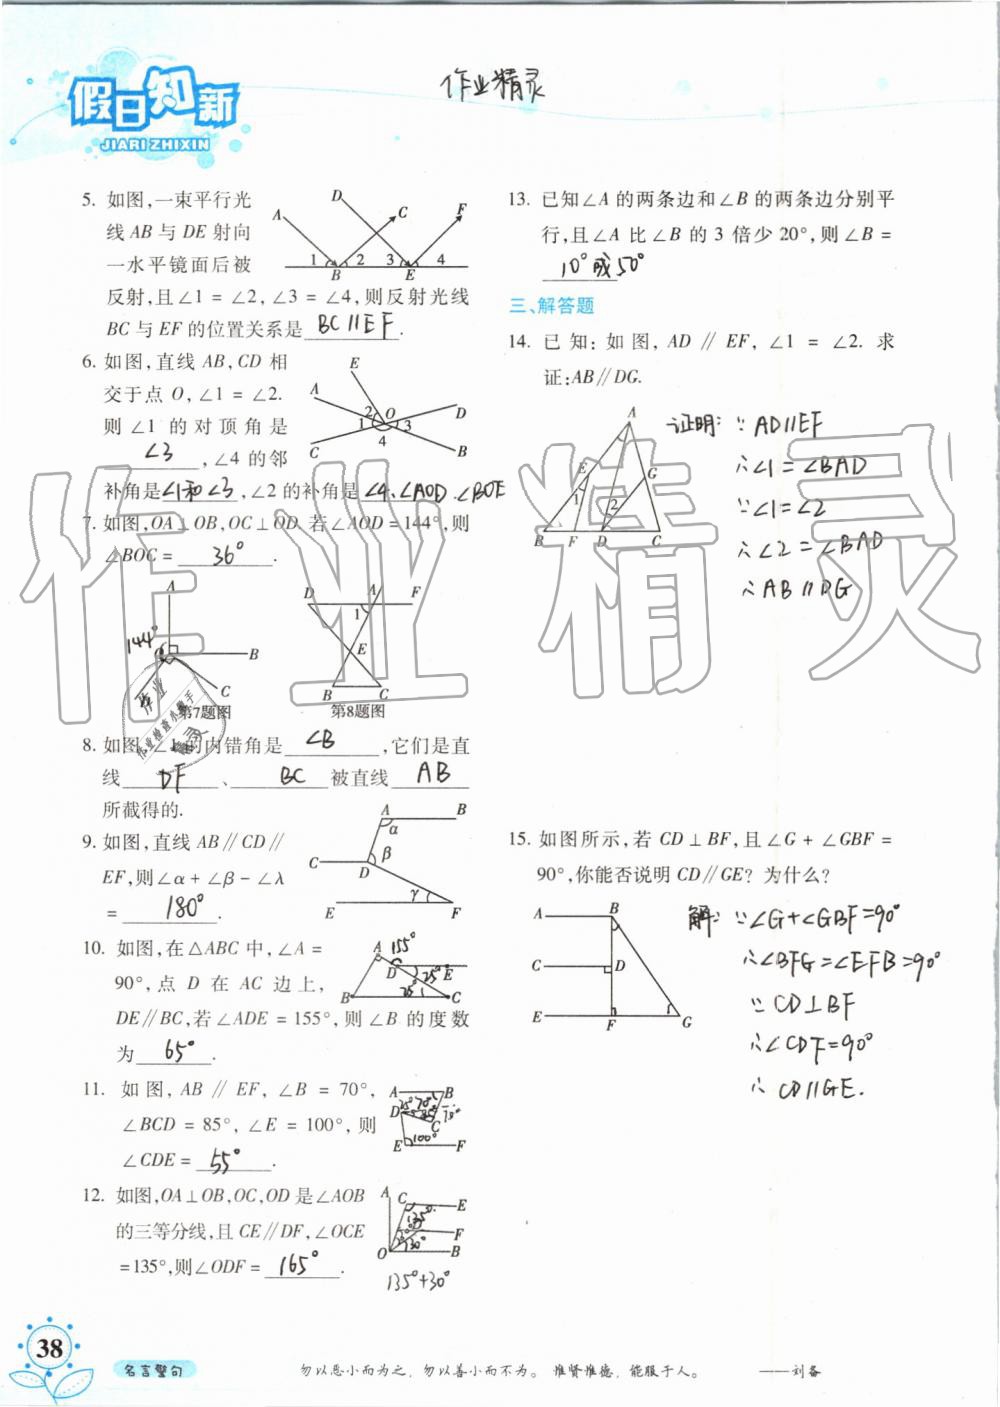 作业精灵
假日知新
JIARI ZHIXIN
5. 如图,一束平行光
线 AB 与 DE 射向
一水平镜面后被
反射,且∠1=∠2,∠3=∠4,则反射光线
BC 与 EF 的位置关系是 BC∥EF .
A D C F
1 2 3 4
B E
6. 如图,直线 AB,CD 相
交于点 O,∠1=∠2.
则∠1 的对顶角是
∠3 ,∠4 的邻
补角是∠1和∠3,∠2的补角是∠4、∠AOD、∠BOE
E
A D
2 O
1 3
4
C B
7. 如图,OA⊥OB,OC⊥OD.若∠AOD=144°,则
∠BOC= 36° .
A
144°
B
C
第7题图
D A F
1
E
B C
第8题图
8. 如图,∠1的内错角是 ∠B ,它们是直
线 DF 、 BC 被直线 AB
所截得的.
9. 如图,直线 AB∥CD∥
EF,则∠α+∠β-∠λ
= 180° .
A B
α
C β
D
γ
E F
10. 如图,在△ABC 中,∠A=
90°,点 D 在 AC 边上,
DE∥BC,若∠ADE=155°,则∠B 的度数
为 65° .
A 155°
D 25° E
25°
B C
11. 如图,AB∥EF,∠B=70°,
∠BCD=85°,∠E=100°,则
∠CDE= 55° .
A B
70°
D
C
100°
E F
12. 如图,OA⊥OB,OC,OD 是∠AOB
的三等分线,且 CE∥DF,∠OCE
=135°,则∠ODF= 165° .
A C E
135°
F
30°
O B
135°+30°
13. 已知∠A 的两条边和∠B 的两条边分别平
行,且∠A 比∠B 的 3 倍少 20°,则∠B=
10°或50°
三、解答题
14. 已知:如图,AD∥EF,∠1=∠2.求
证:AB∥DG.
A
E G
1 2
B F D C
证明:∵AD∥EF
∴∠1=∠BAD
∵∠1=∠2
∴∠2=∠BAD
∴AB∥DG
15. 如图所示,若 CD⊥BF,且∠G+∠GBF=
90°,你能否说明 CD∥GE?为什么?
A B
C D
E F G
解:∵∠G+∠GBF=90°
∴∠BFG=∠EFB=90°
∵CD⊥BF
∴∠CDF=90°
∴CD∥GE.
作业精灵
作业
作业检查小帮手
精灵
38
名言警句
勿以恶小而为之,勿以善小而不为。惟贤惟德,能服于人。 ——刘备